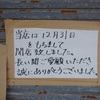 当店は12月31日
をもちまして
閉店致しました。
長い間ご愛顧いただき
誠にありがとうございました。